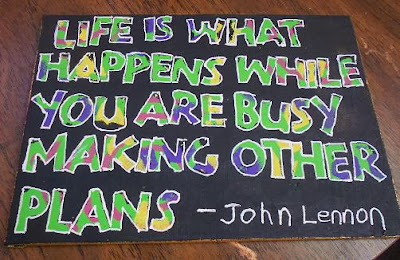 LIFE IS WHAT
HAPPENS WHILE
YOU ARE BUSY
MAKING OTHER
PLANS - John Lennon